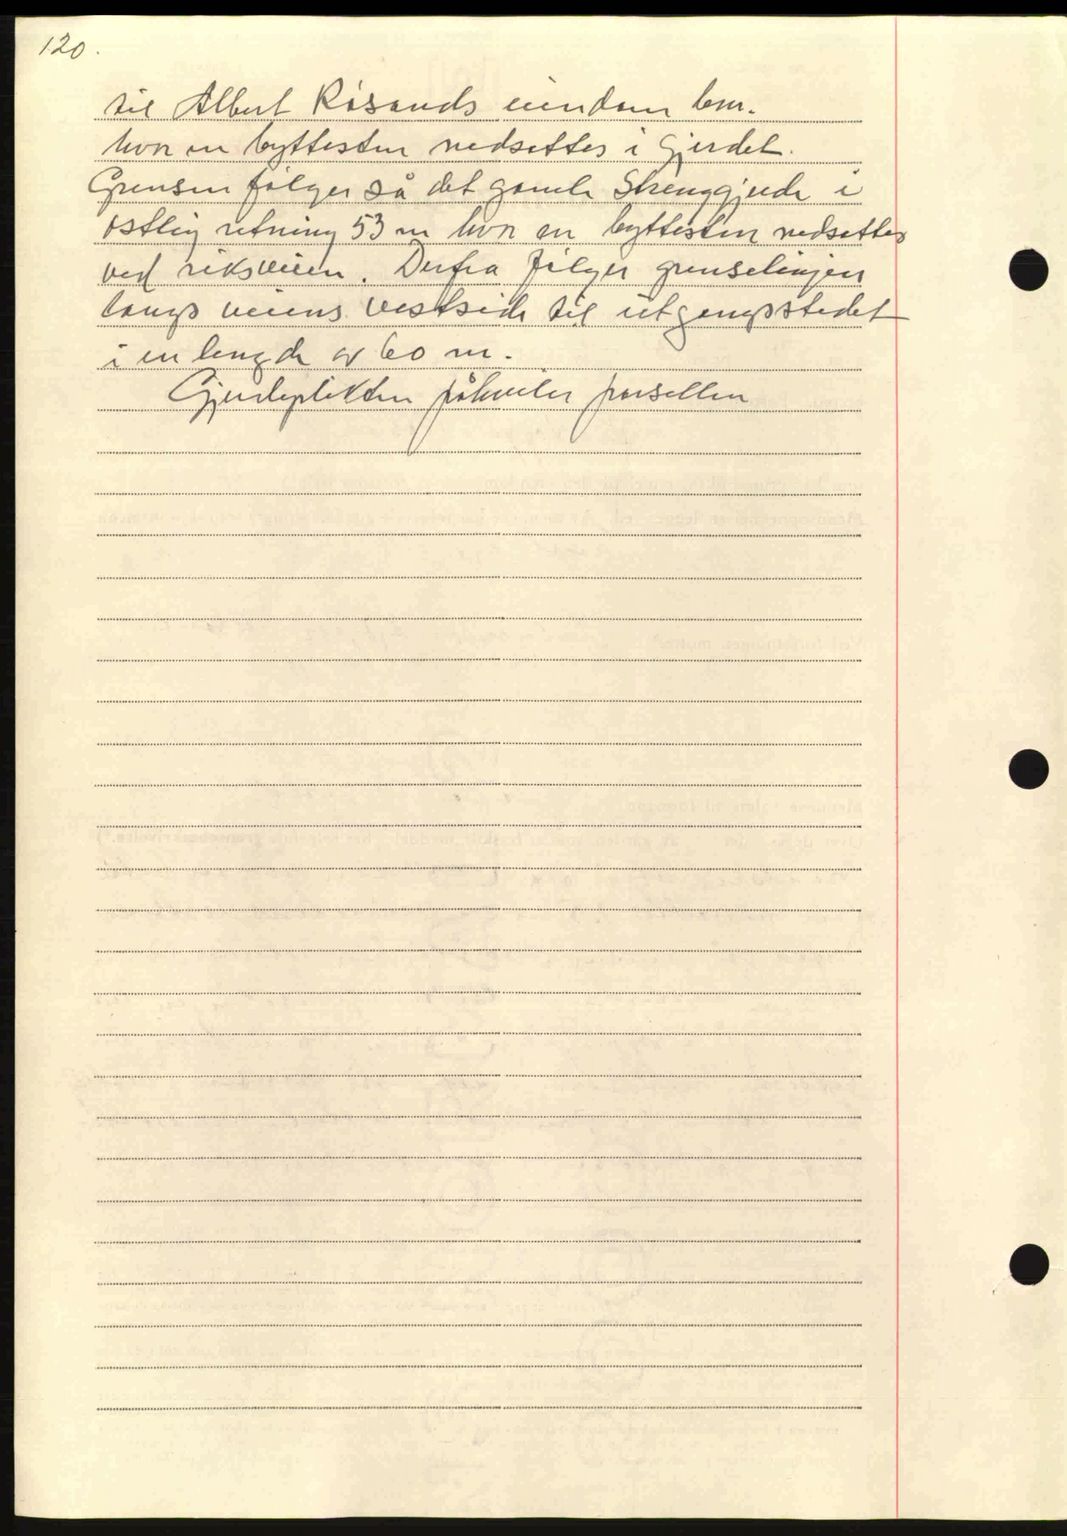 120.
til Albert Røsands eiendom bnr.
hvor en byttesten nedsettes i gjerdet.
Grensen følger så det gamle Strenggjerde i
østlig retning 53 m hvor en byttesten nedsettes
ved riksveien. Derfra følger grenselinjen
langs veiens vestside til utgangsstedet
i en lengde av 60 m.
Gjerdeplikten påhviler parsellen